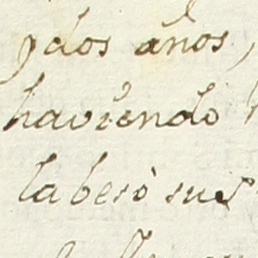 y dos años,
haviendo
la besò sus